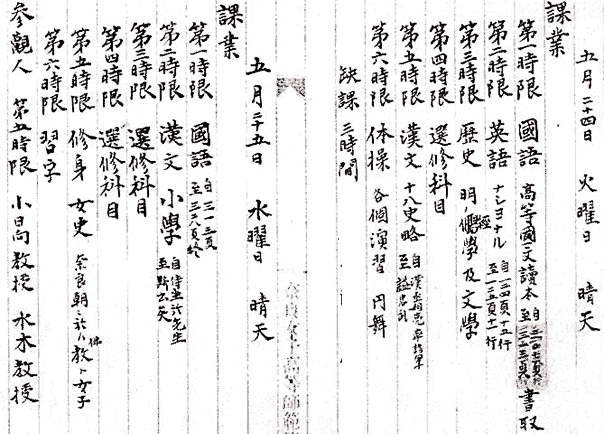 五月二十四日 火曜日 晴天
課業
第一時限 國語 高等國文讀本 自 至 書取
第二時限 英語 ナショナル 自一二四頁十五行 至一二五頁十一行
第三時限 歴史 明ノ儒學及文學
第四時限 選修科目
第五時限 漢文 十八史略 自漢 至
第六時限 体操 各個演習 円舞
缺課 三時間
五月二十五日 水曜日 晴天
課業
第一時限 國語 自三一三頁 至三二六頁終
第二時限 漢文 小學 自侍坐於先生 至斯公矣
第三時限 選修科目
第四時限 選修科目
第五時限 修身 女史 奈良朝ニ於ル佛教ト女子
第六時限 習字
參觀人 第五時限 小日向教授 水木教授
奈良女子高等師範